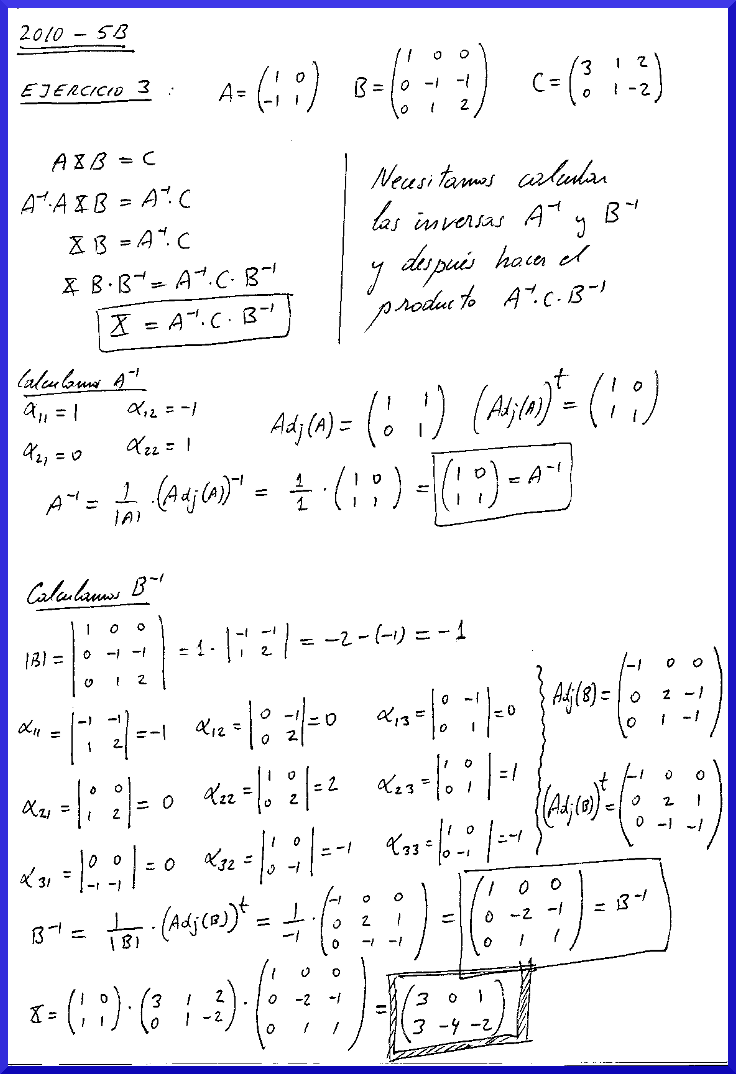 2010 - 5B
EJERCICIO 3 : A = (1 0; -1 1) B = (1 0 0; 0 -1 -1; 0 1 2) C = (3 1 2; 0 1 -2)
A X B = C
A⁻¹·A X B = A⁻¹·C
X B = A⁻¹·C
X B·B⁻¹ = A⁻¹·C·B⁻¹
X = A⁻¹·C·B⁻¹
Necesitamos calcular
las inversas A⁻¹ y B⁻¹
y después hacer el
producto A⁻¹·C·B⁻¹
Calculamos A⁻¹
α₁₁ = 1 α₁₂ = -1
α₂₁ = 0 α₂₂ = 1
Adj(A) = (1 1; 0 1) (Adj(A))ᵗ = (1 0; 1 1)
A⁻¹ = 1/|A| · (Adj(A))⁻¹ = 1/1 · (1 0; 1 1) = (1 0; 1 1) = A⁻¹
Calculamos B⁻¹
|B| = |1 0 0; 0 -1 -1; 0 1 2| = 1 · |-1 -1; 1 2| = -2 - (-1) = -1
α₁₁ = |-1 -1; 1 2| = -1 α₁₂ = |0 -1; 0 2| = 0 α₁₃ = |0 -1; 0 1| = 0
α₂₁ = |0 0; 1 2| = 0 α₂₂ = |1 0; 0 2| = 2 α₂₃ = |1 0; 0 1| = 1
α₃₁ = |0 0; -1 -1| = 0 α₃₂ = |1 0; 0 -1| = -1 α₃₃ = |1 0; 0 -1| = -1
Adj(B) = (-1 0 0; 0 2 -1; 0 1 -1)
(Adj(B))ᵗ = (-1 0 0; 0 2 1; 0 -1 -1)
B⁻¹ = 1/|B| · (Adj(B))ᵗ = 1/-1 · (-1 0 0; 0 2 1; 0 -1 -1) = (1 0 0; 0 -2 -1; 0 1 1) = B⁻¹
X = (1 0; 1 1) · (3 1 2; 0 1 -2) · (1 0 0; 0 -2 -1; 0 1 1) = (3 0 1; 3 -4 -2)